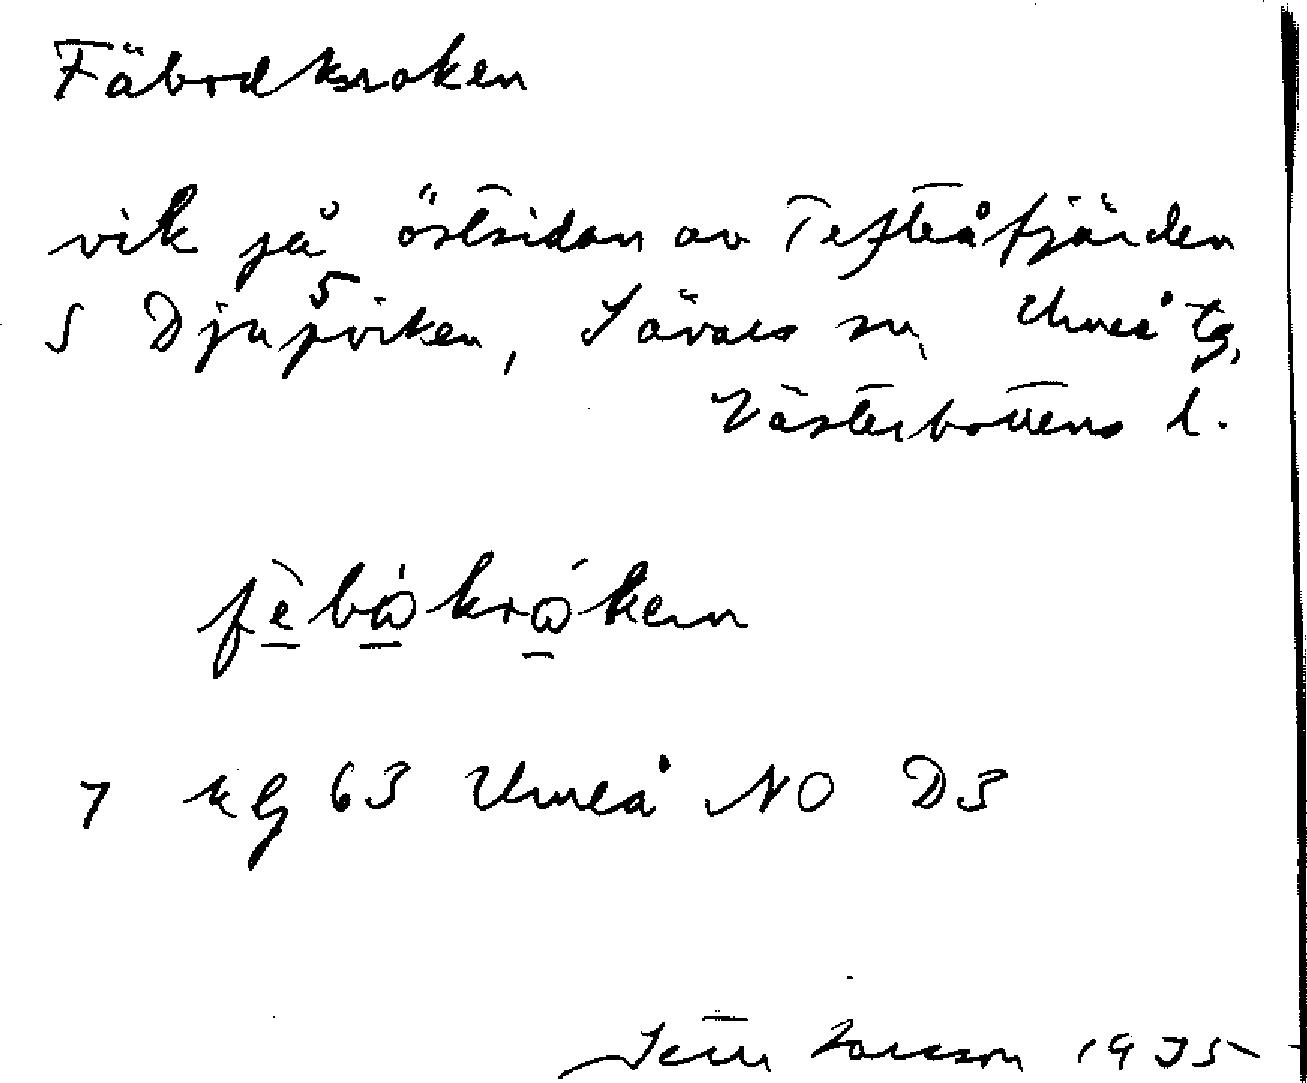 Fäbodkroken
vik på östsidan av Tefteåfjärden
S Djupviken, Sävars sn, Umeå tg,
Västerbottens l.
kg 63 Umeå NO D3
Larsson 1975